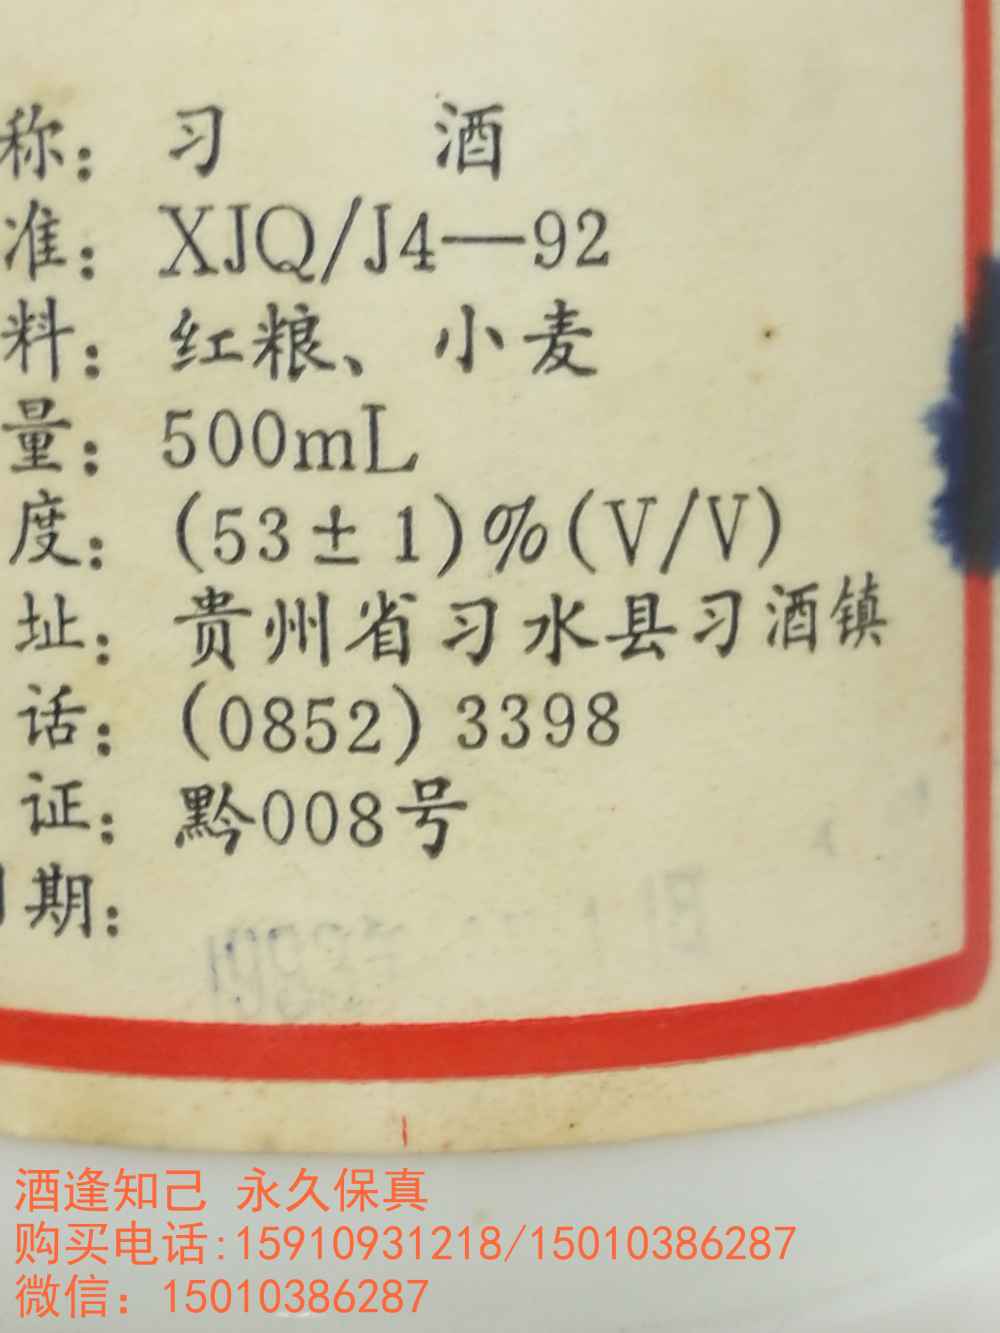 称：习 酒
准：XJQ/J4—92
料：红粮、小麦
量：500mL
度：(53±1)%(V/V)
址：贵州省习水县习酒镇
话：(0852)3398
证：黔008号
期：
酒逢知己 永久保真
购买电话:15910931218/15010386287
微信：15010386287